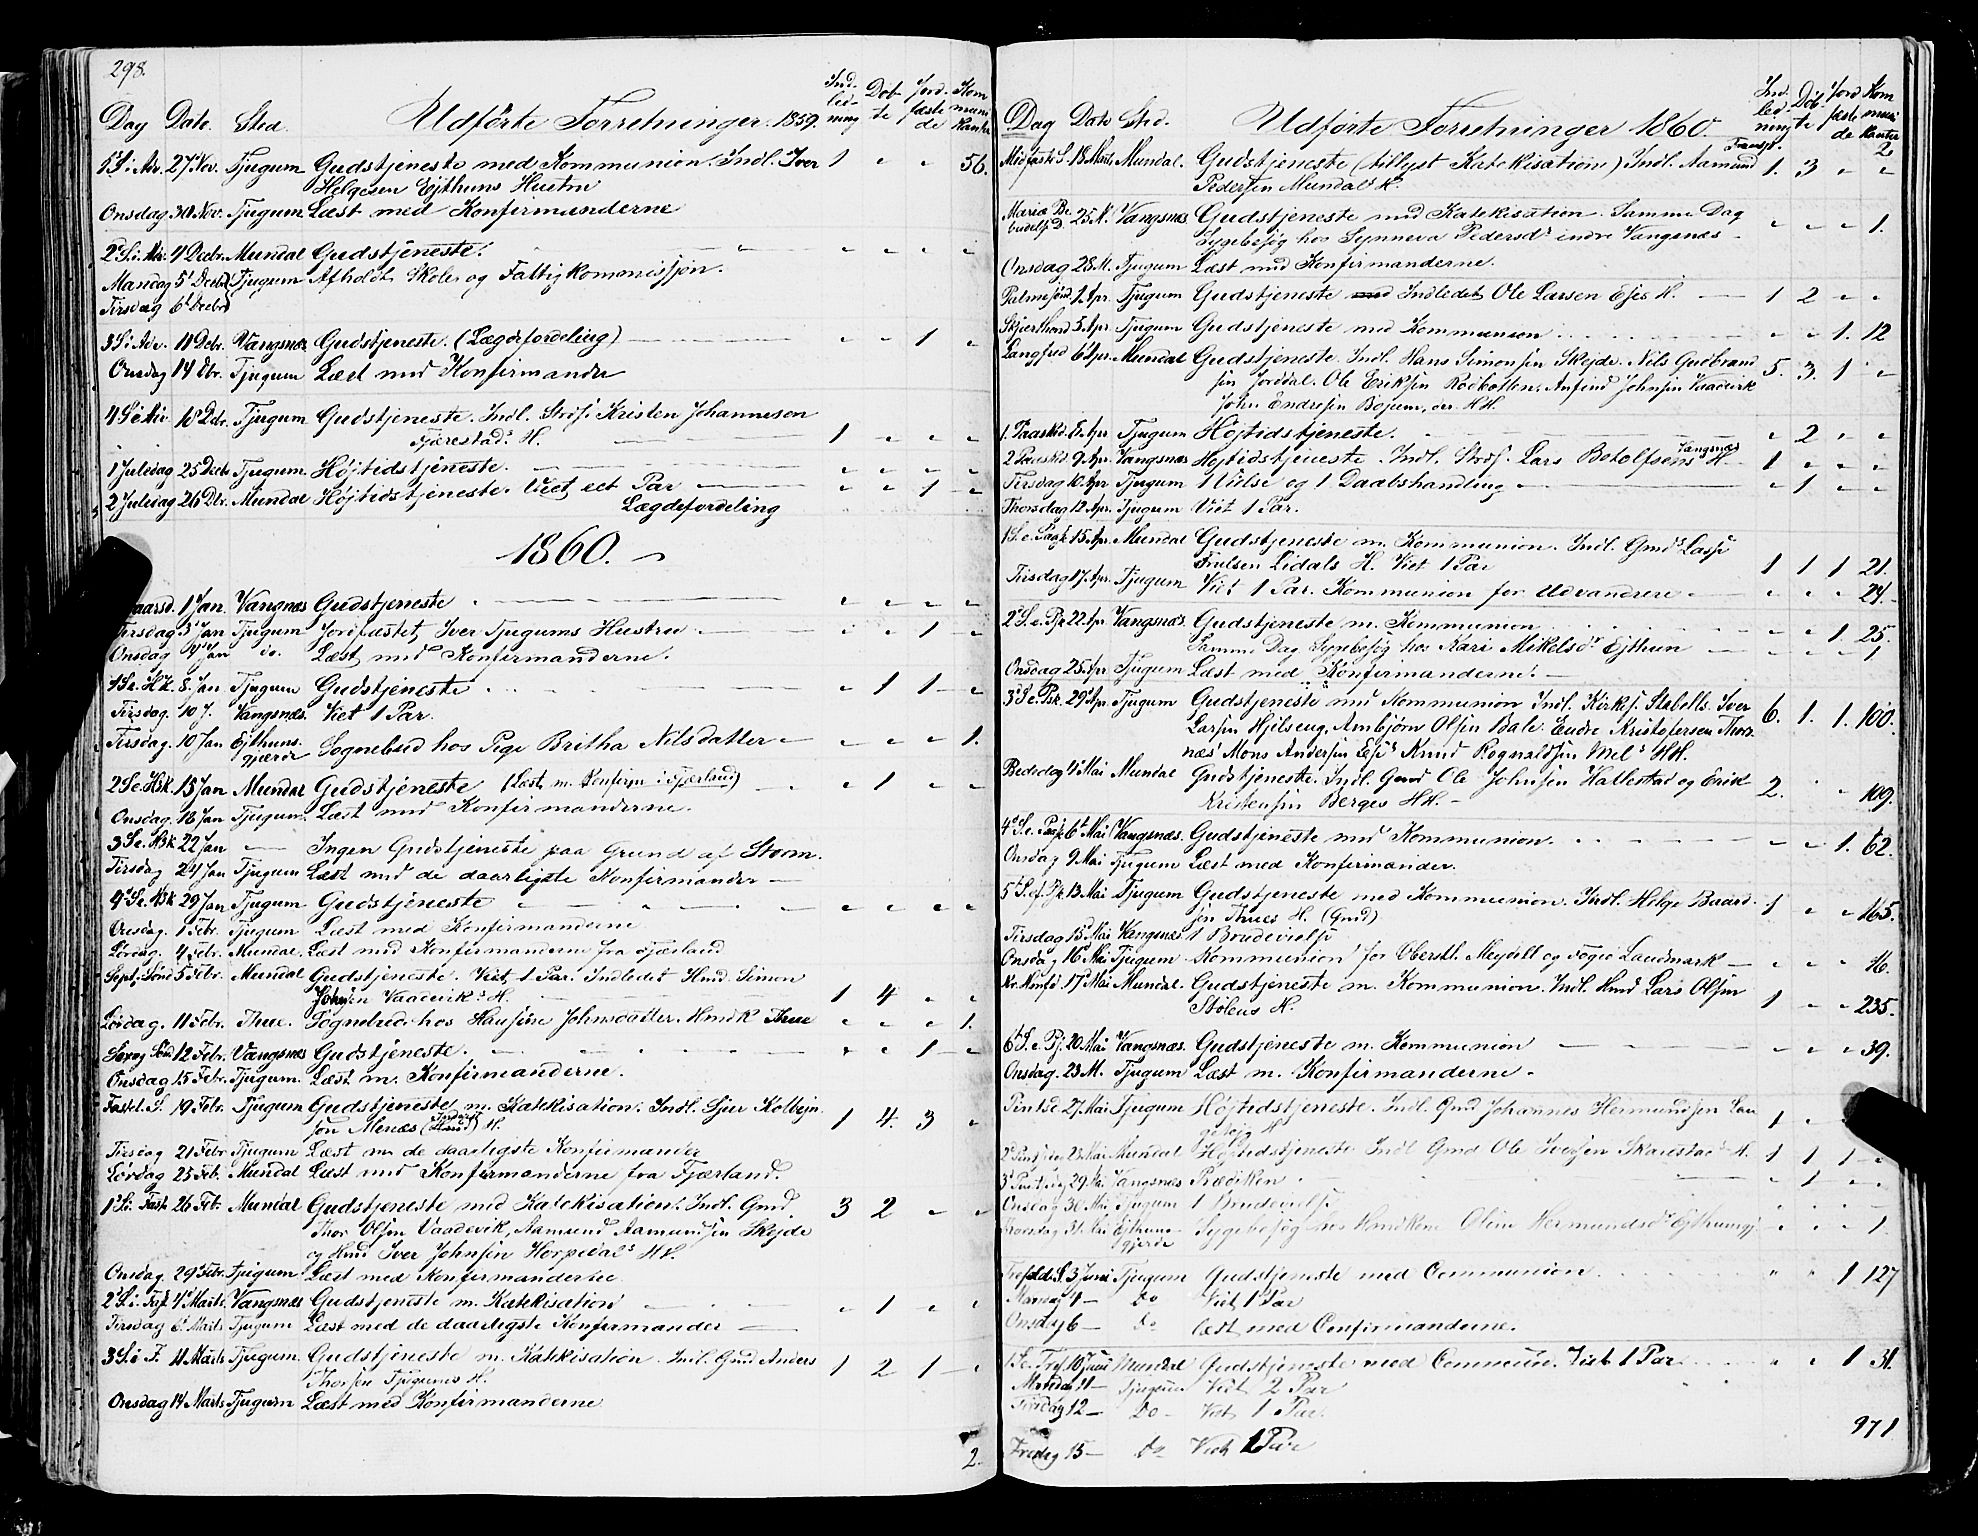 298.
Dag Dato. Sted. Udførte Forretninger. 1859. Ind- led- ning Døb- te Jord- fæste- de Kom- muni- kanter
1ste S. i Adv. 27de Nov. Tjugum Gudstjeneste med Kommunion. Indl. Iver 1 " " 56.
Helgesen Ejthuns Hustru
Onsdag 30te Nov. Tjugum Læst med Konfirmanderne
2 S. i Adv. 4 Decbr. Mundal Gudstjeneste. " " " "
Mandag 5te Decbr. Tjugum Afholdt Skole og Fattigkommissjon.
Tirsdag 6te Decbr.
3 S. i Adv. 11 Decbr. Vangsnæs Gudstjeneste. (Lægdfordeling) " " 1 "
Onsdag 14 Dbr. Tjugum Læst med Konfirmander
4 S. i Adv. 18 Dcbr. Tjugum Gudstjeneste. Indl. Strøs. Kristen Johannesen
Fjærestads H. 1 " " "
1 Juledag 25 Decbr. Tjugum. Højtidstjeneste. " " " "
2 Juledag 26 Dbr. Mundal Højtidstjeneste. Viet eet Par " " 1 "
Lægdefordeling
1860.
aarsd. 1 Jan. Vangnæs Gudstjeneste " " " "
Tirsdag 3 Jan Tjugum Jordfæstet Iver Tjugums Hustru " " 1 "
Onsdag 4 Jan do. Læst med Konfirmanderne.
1 S. e. H.K. 8. Jan. Tjugum Gudstjeneste " 1 1 "
Tirsdag. 10 J. Vangsnæs. Viet 1 Par.
Tirsdag. 10 Jan Ejthuns- Sognebud hos Pige Britha Nilsdatter " " " 1.
gjerde
2 S. e. H3k. 15 Jan Mundal Gudstjeneste (Læst m. Konfirm i Fjærland) " 1 " "
Onsdag. 18 Jan Tjugum. Læst med Konfirmanderne.
3 S. e. H3k 22 Jan — Ingen Gudstjeneste paa Grund af Storm.
Tirsdag 24 Jan Tjugum Læst med de daarligste Konfirmander —
4 S. e. H3k 29 Jan Tjugum Gudstjeneste " " " "
Onsdag. 1 Febr. Tjugum Læst med Konfirmanderne
Lørdag. 4 Febr. Mundal. Læst med Konfirmanderne fra Fjærland
Sept. Sønd 5 Febr. Mundal Gudstjeneste. Viet 1 Par. Indledet Hmd. Simon
Johnsen Vaadevik's H. 1 4 " "
Lørdag. 11 Febr. Thue. Sognebud hos Hansine Johnsdatter. Hmdk Thue " " " 1.
Sexag Sønd 12 Febr. Vangsnæs Gudstjeneste. " " 1 "
Onsdag 15 Febr. Tjugum. Læst m. Konfirmanderne.
Fastel. S. 19 Febr. Tjugum Gudstjeneste m. Katekisation. Indl. Sjur Kolbejn
sen Menæs (Hmd) H. 1 4. 3 "
Tirsdag 21 Febr Tjugum Læst m. de daarligste Konfirmander
Lørdag 25 Feb. Mundal Læst med Konfirmanderne fra Fjærland.
1 S. i Fast. 26 Feb. Mundal Gudstjeneste med Katekisation. Indl. Gmd. 3 2 " "
Thor Olsen Vaadevik, Aamund Aamundsen Skejde
og Hmd Iver Johnsen Horpedals HH.
Onsdag. 29 Febr. Tjugum Læst med Konfirmanderne
2 S. i. Fast 4 Marts. Vangsnæs Gudstjeneste m. Katekisation " 1 " "
Tirsdag 6. Marts Tjugum Læst med de daarligste Konfirmander —
3 S. i F. 11 Marts Tjugum. Gudstjeneste m. Katekisation. Indl. Gmd Anders 1 2 1 "
Thorsen Tjugums H.
Onsdag 14 Marts Tjugum Læst med Konfirmanderne
2.
Dag Dato Sted. Udførte Forretninger 1860. Ind- led- ning Døb- te Jord- fæste- de Kom- muni- kanter
Transp. 2
Midfaste S. 18 Marts Mundal. Gudstjeneste (tillyst Katekisation) Indl. Aamund 1. 3 " "
Pedersen Mundals H.
Mariæ Be- budels D. 25 M. Vangsnæs Gudstjeneste med Katekisation. Samme Dag
Sygebesøg hos Synneva Pedersdr indre Vangsnæs " " " 1.
Onsdag 28 M. Tjugum Læst med Konfirmanderne.
Palmesønd 1 Apr. Tjugum Gudstjeneste med Indledet Ole Larsen Eses H. 1 2 " "
Skjærthorsd 5 Apr. Tjugum Gudstjeneste med Kommunion " " 1. 12
Langfred 6 Apr. Mundal Gudstjeneste. Indl. Hans Simonsen Skejde. Nils Gudbrand 5. 3. 1 "
sen Jorddal. Ole Eriksen Rødbotten. Anfind Johnsen Vaadevik
John Endresen Bojum, ders HH.
1. Paaskd. 8 Apr Tjugum Højtidstjeneste. " 2 " "
2 Paaskd. 9. Apr. Vangsnæs Højtidstjeneste. Indl. Strøs. Lars Botolfsens Vangsnæs H. 1 " " "
Tirsdag 10 Apr Tjugum 1 Vielse og 1 Daabshandling " 1 " "
Thorsdag 12 Apr. Tjugum Viet 1 Par.
1 S. e. Paask 15. Apr. Mundal Gudstjeneste m. Kommunion. Indl. Gmds Lasse
Lidals H. Viet 1 Par 1 1 1 21.
Tirsdag 17. Apr. Tjugum Viet 1 Par. Kommunion for Udvandrere " " " 24.
2 S. e. Psk 22 Apr. Vangsnæs. Gudstjeneste m. Kommunion " " 1. 25.
Samme Dag Sygebesøg hos Kari Mikelsdr Ejthun " " " 1
Onsdag 25 Apr Tjugum Læst med Konfirmanderne. —
3 S. e. Psk. 29 Apr. Tjugum Gudstjeneste med Kommunion Indl. Kirkes. Stabells. Iver 6. 1. 1. 100.
Larsen Hjelseng. Arnbjørn Olsen Bale. Endre Kristofersen Thor-
næs' Mons Andersen Eses Knud Rognaldsen Mels HH.
Bededag 4 Mai Mundal Gudstjeneste. Indl. Gmd Ole Johnsen Hallestad og Erik
Kristensen Berges HH. 2. " " 109.
4 S. e. Paask 6te Mai Vangsnæs. Gudstjeneste med Kommunion. " " 1. 62.
Onsdag 9 Mai Tjugum Læst med Konfirmander.
5 S. ef. Psk. 13. Mai Tjugum Gudstjeneste med Kommunion. Indl. Helge Baard 1 " " 165.
sen Thues H. (Gmd)
Tirsdag 15 Mai Vangsnæs 1 Brudevielse
Onsdag 16 Mai Tjugum Kommunion for Oberstl. Meydell og Foged Landmark " " " 16.
Kr. Himf. 17 Mai Mundal. Gudstjeneste m. Kommunion. Indl. Hmd Lars Olsen
Stølens H. 1 " " 235.
6 S. e. Pj. 20. Mai Vangsnæs. Gudstjeneste m. Kommunion " " " 39.
Onsdag. 23 M. Tjugum Læst m. Konfirmanderne.
Pintsd. 27. Mai Tjugum Højtidstjeneste. Indl. Gmd Johannes Hermundsen Lun 1 "
H.
2 Pintsedag 28 Mai Mundal Højtidstjeneste Indl Gmd Ole Iversen Skarestads H. 1 1 1 "
3 Pintsdag 29. Mai Vangsnæs Prædiken " 1 " "
Onsdag 30 Mai Tjugum 1 Brudevielse
Torsdag 31. Mai Ejthuns- gjerde Sygebesøg hos Hmdkone Oline Hermundsdr Ejthunsgj. " " " 1
Trefold. S. 3 Juni Tjugum Gudstjeneste med Communion " " 1 127
Mandag 4 — Do Viet 1 Par
Onsdag 6 — Do læst med Confirmanderne.
1 S. e. Tref 10 Juni Mundal Gudstjeneste med Commun. Viet 1 Par " " 1 31.
Mandag 11 — Tjugum Viet 2 Par
Tirsdag 12 — Do — Viet 1 Par.
971
Fredag 15 — Do Viet 1 Par